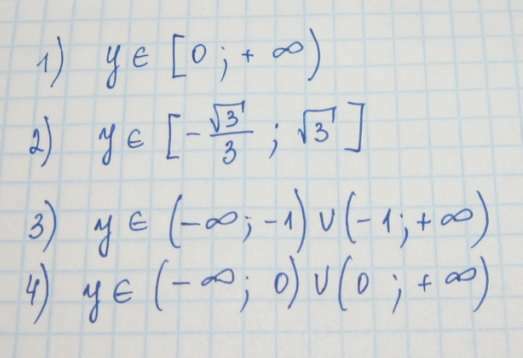 1) y ∈ [0 ; + ∞)
2) y ∈ [-√3/3 ; √3]
3) y ∈ (-∞; -1) ∪ (-1; +∞)
4) y ∈ (-∞; 0) ∪ (0 ; +∞)